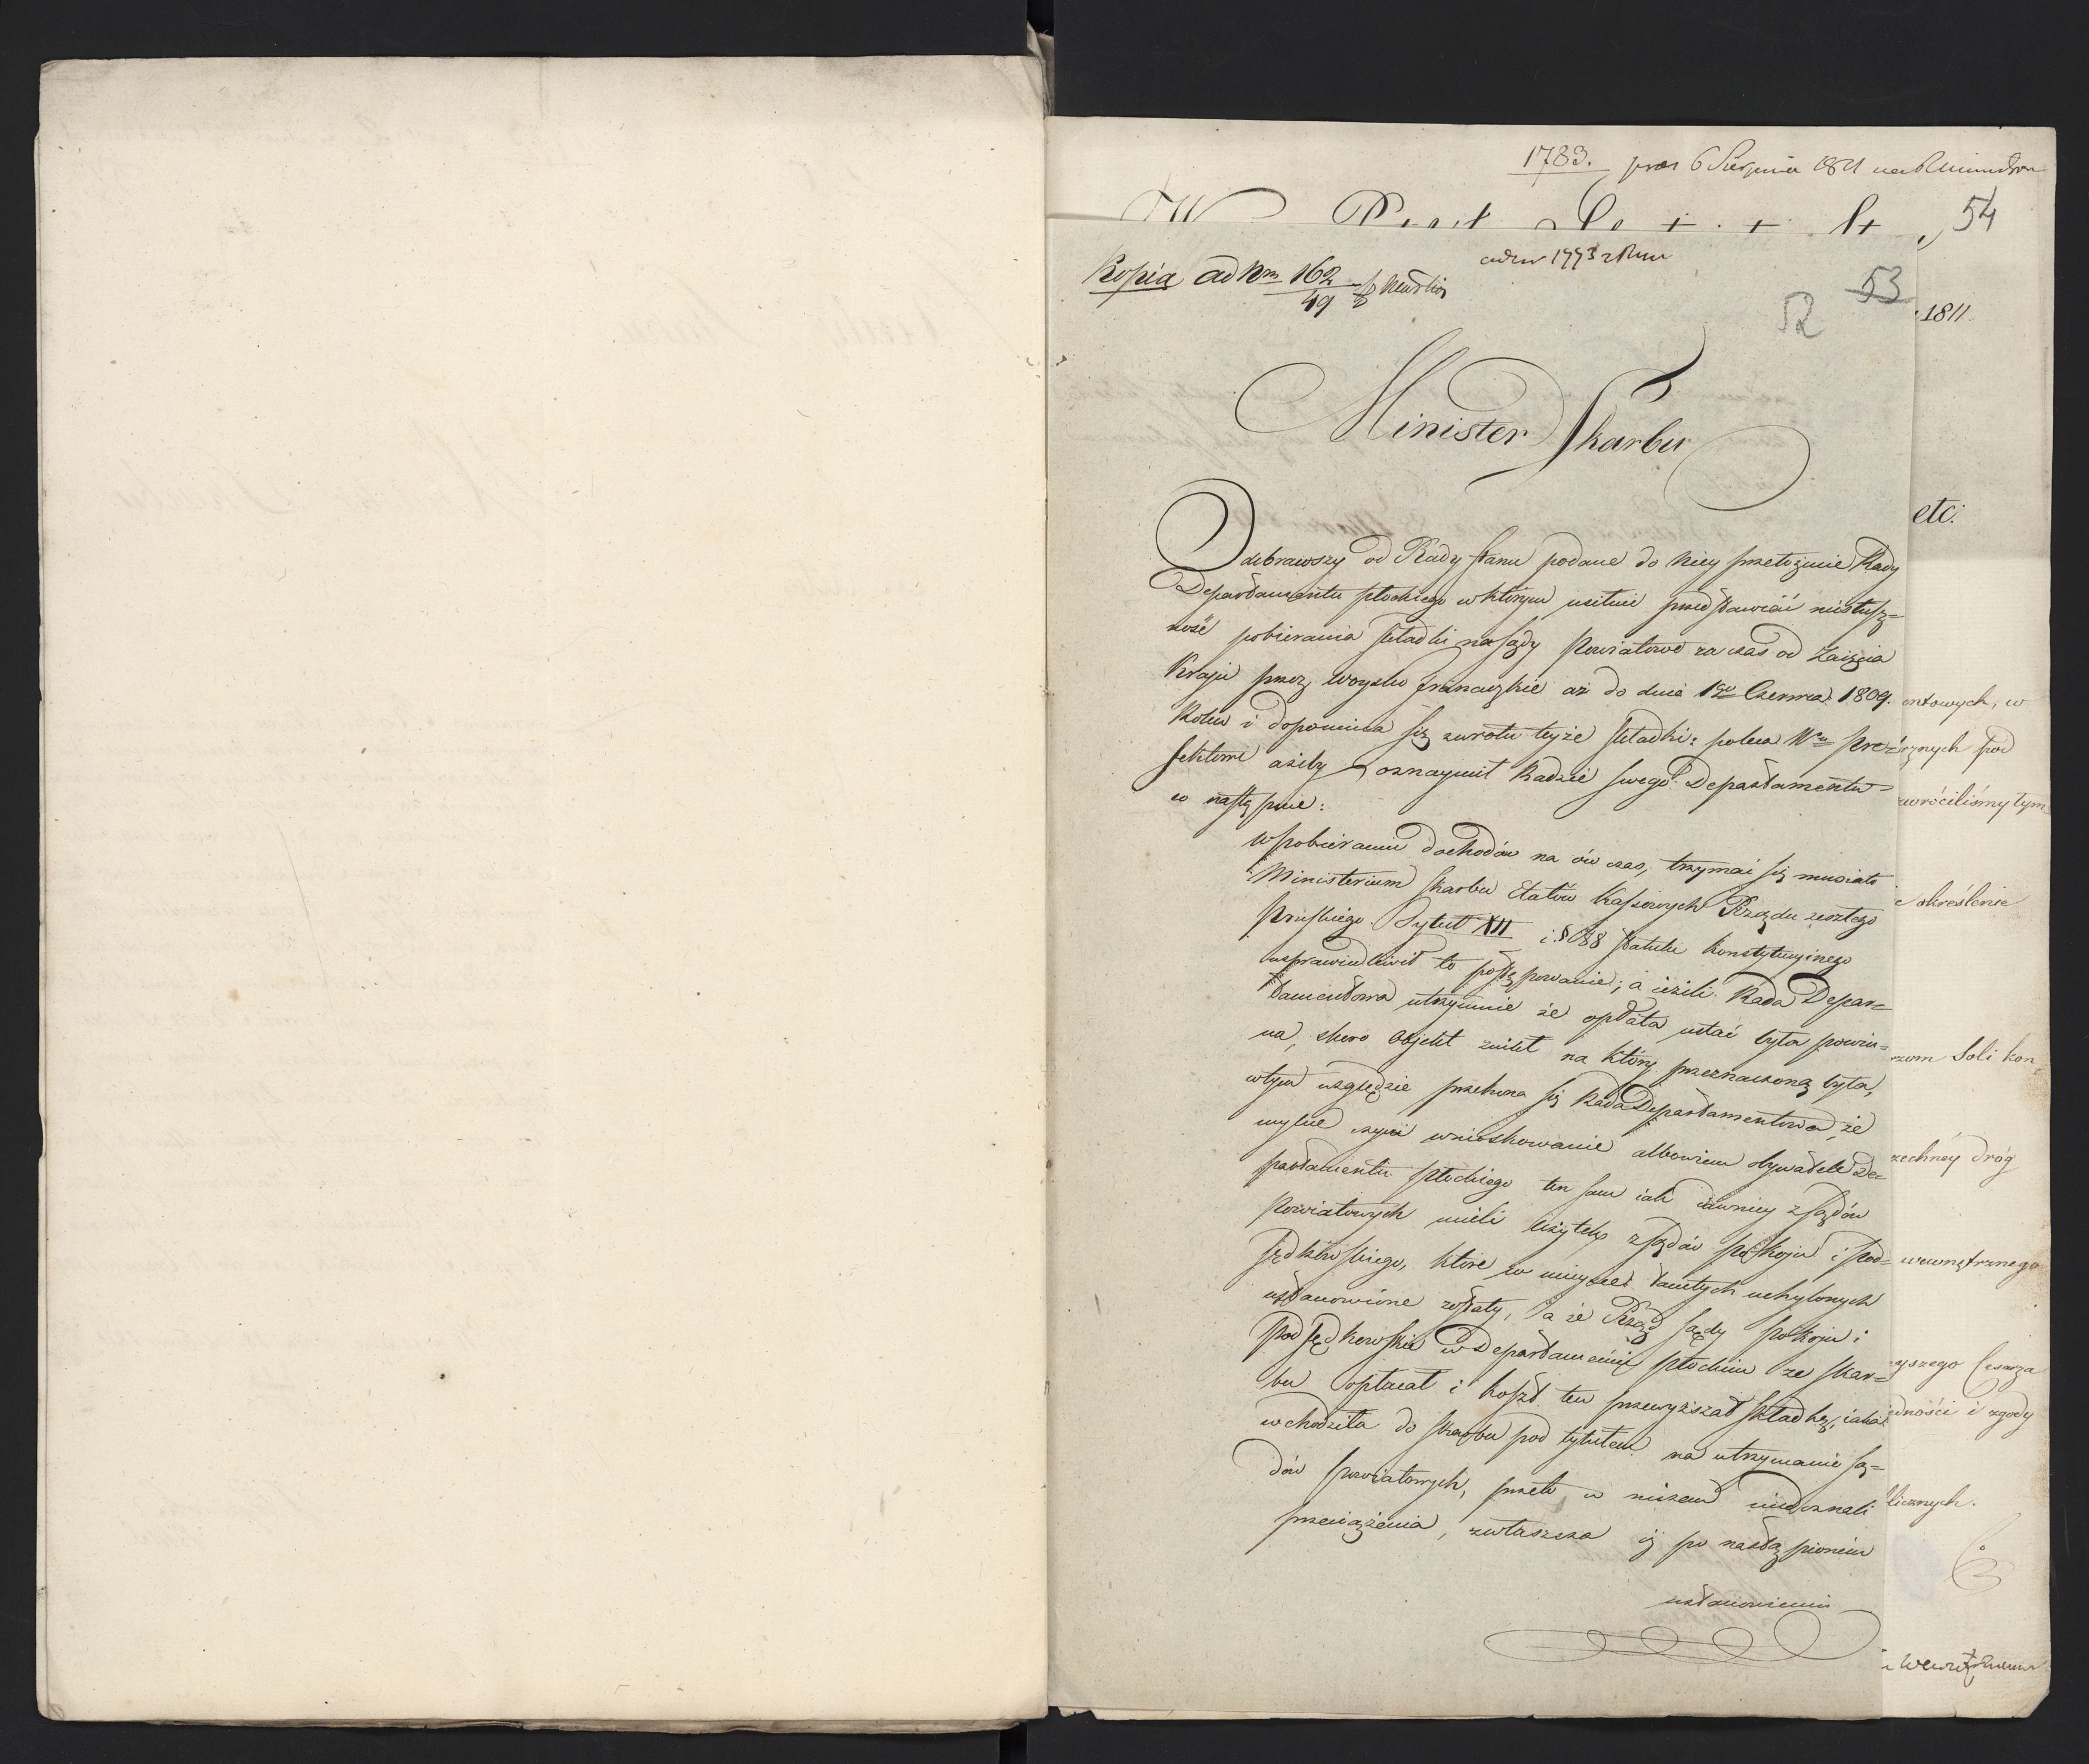 1783. 6 Sierpnia
54
Kopia ad Nrm 162/49
53
52
1811.
Minister Skarbu
etc:
Odebrawszy od Rady Stanu podane do Niey przełożenie Rady
Departamentu płockiego w którym usiłuie przedstawiać niesłusz=
ność pobierania składki na sądy Powiatowe za czas od Zaięcia
Kraju przez Woysko francuzkie aż do dnia 1go Czerwca 1809.
Roku i dopomina się zwrotu teyże składki: poleca Wu Pre=
fektowi ażeby oznaymił Radzie swego Departamentu
co następuie:
W pobieraniu dochodów na ów czas, trzymać się musiało
Ministerium Skarbu Etatów Kassowych Rządu zeszłego
Pruskiego. Tytuł XII i § 88 Statutu Konstytucyinego
usprawiedliwił to postępowanie; a ieżeli Rada Depar=
tamentowa utrzymuie że opłata ustać była powin=
na, skoro objekt znikł na który przeznaczoną była,
w tym względzie przekona się Rada Departamentowa, że
mylne czyni wnioskowanie albowiem obywatele De=
partamentu płockiego ten sam iak dawniey z sądów
Powiatowych mieli użytek z sądów Pokoju i Pod=
sędkowskiego, które w mieysce tamtych uchylonych
ustanowione zostały, a że Rząd sądy Pokoju i
Podsędkowskie w Departamencie płockim ze Skar=
bu opłacał i koszt ten przewyższał składkę, iaka
wchodziła do Skarbu pod tytułem na utrzymanie są=
dów powiatowych, przeto w niczem nie doznali
przeciążenia, zwłaszcza iż po nastąpionem
ustanowieniu
entowych, w
rznych pod
zwróciliśmy tym
określenie
rzom Soli kon
zechnéy dróg
wewnętrznego
yszego Cesarza
edności i zgody
licznych.